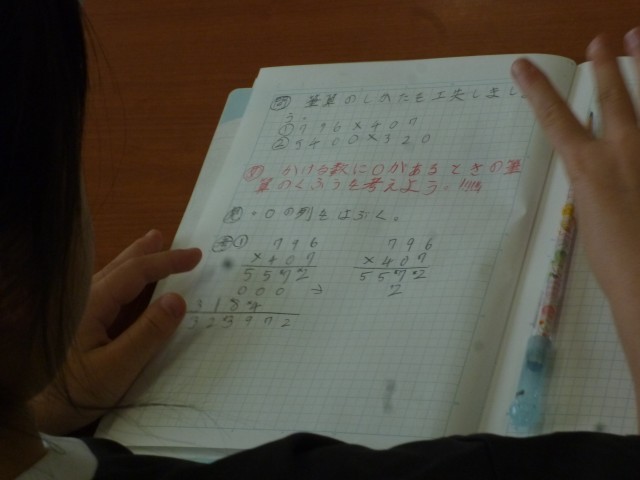 問 筆算のしのたも工夫しまし
う。
①796×407
②5400×320
め かける数に0があるときの筆
算のくふうを考えよう。
見・0の列をはぶく。
考①
796
×407
5572
000 →
3184
323972
796
×407
5572
2